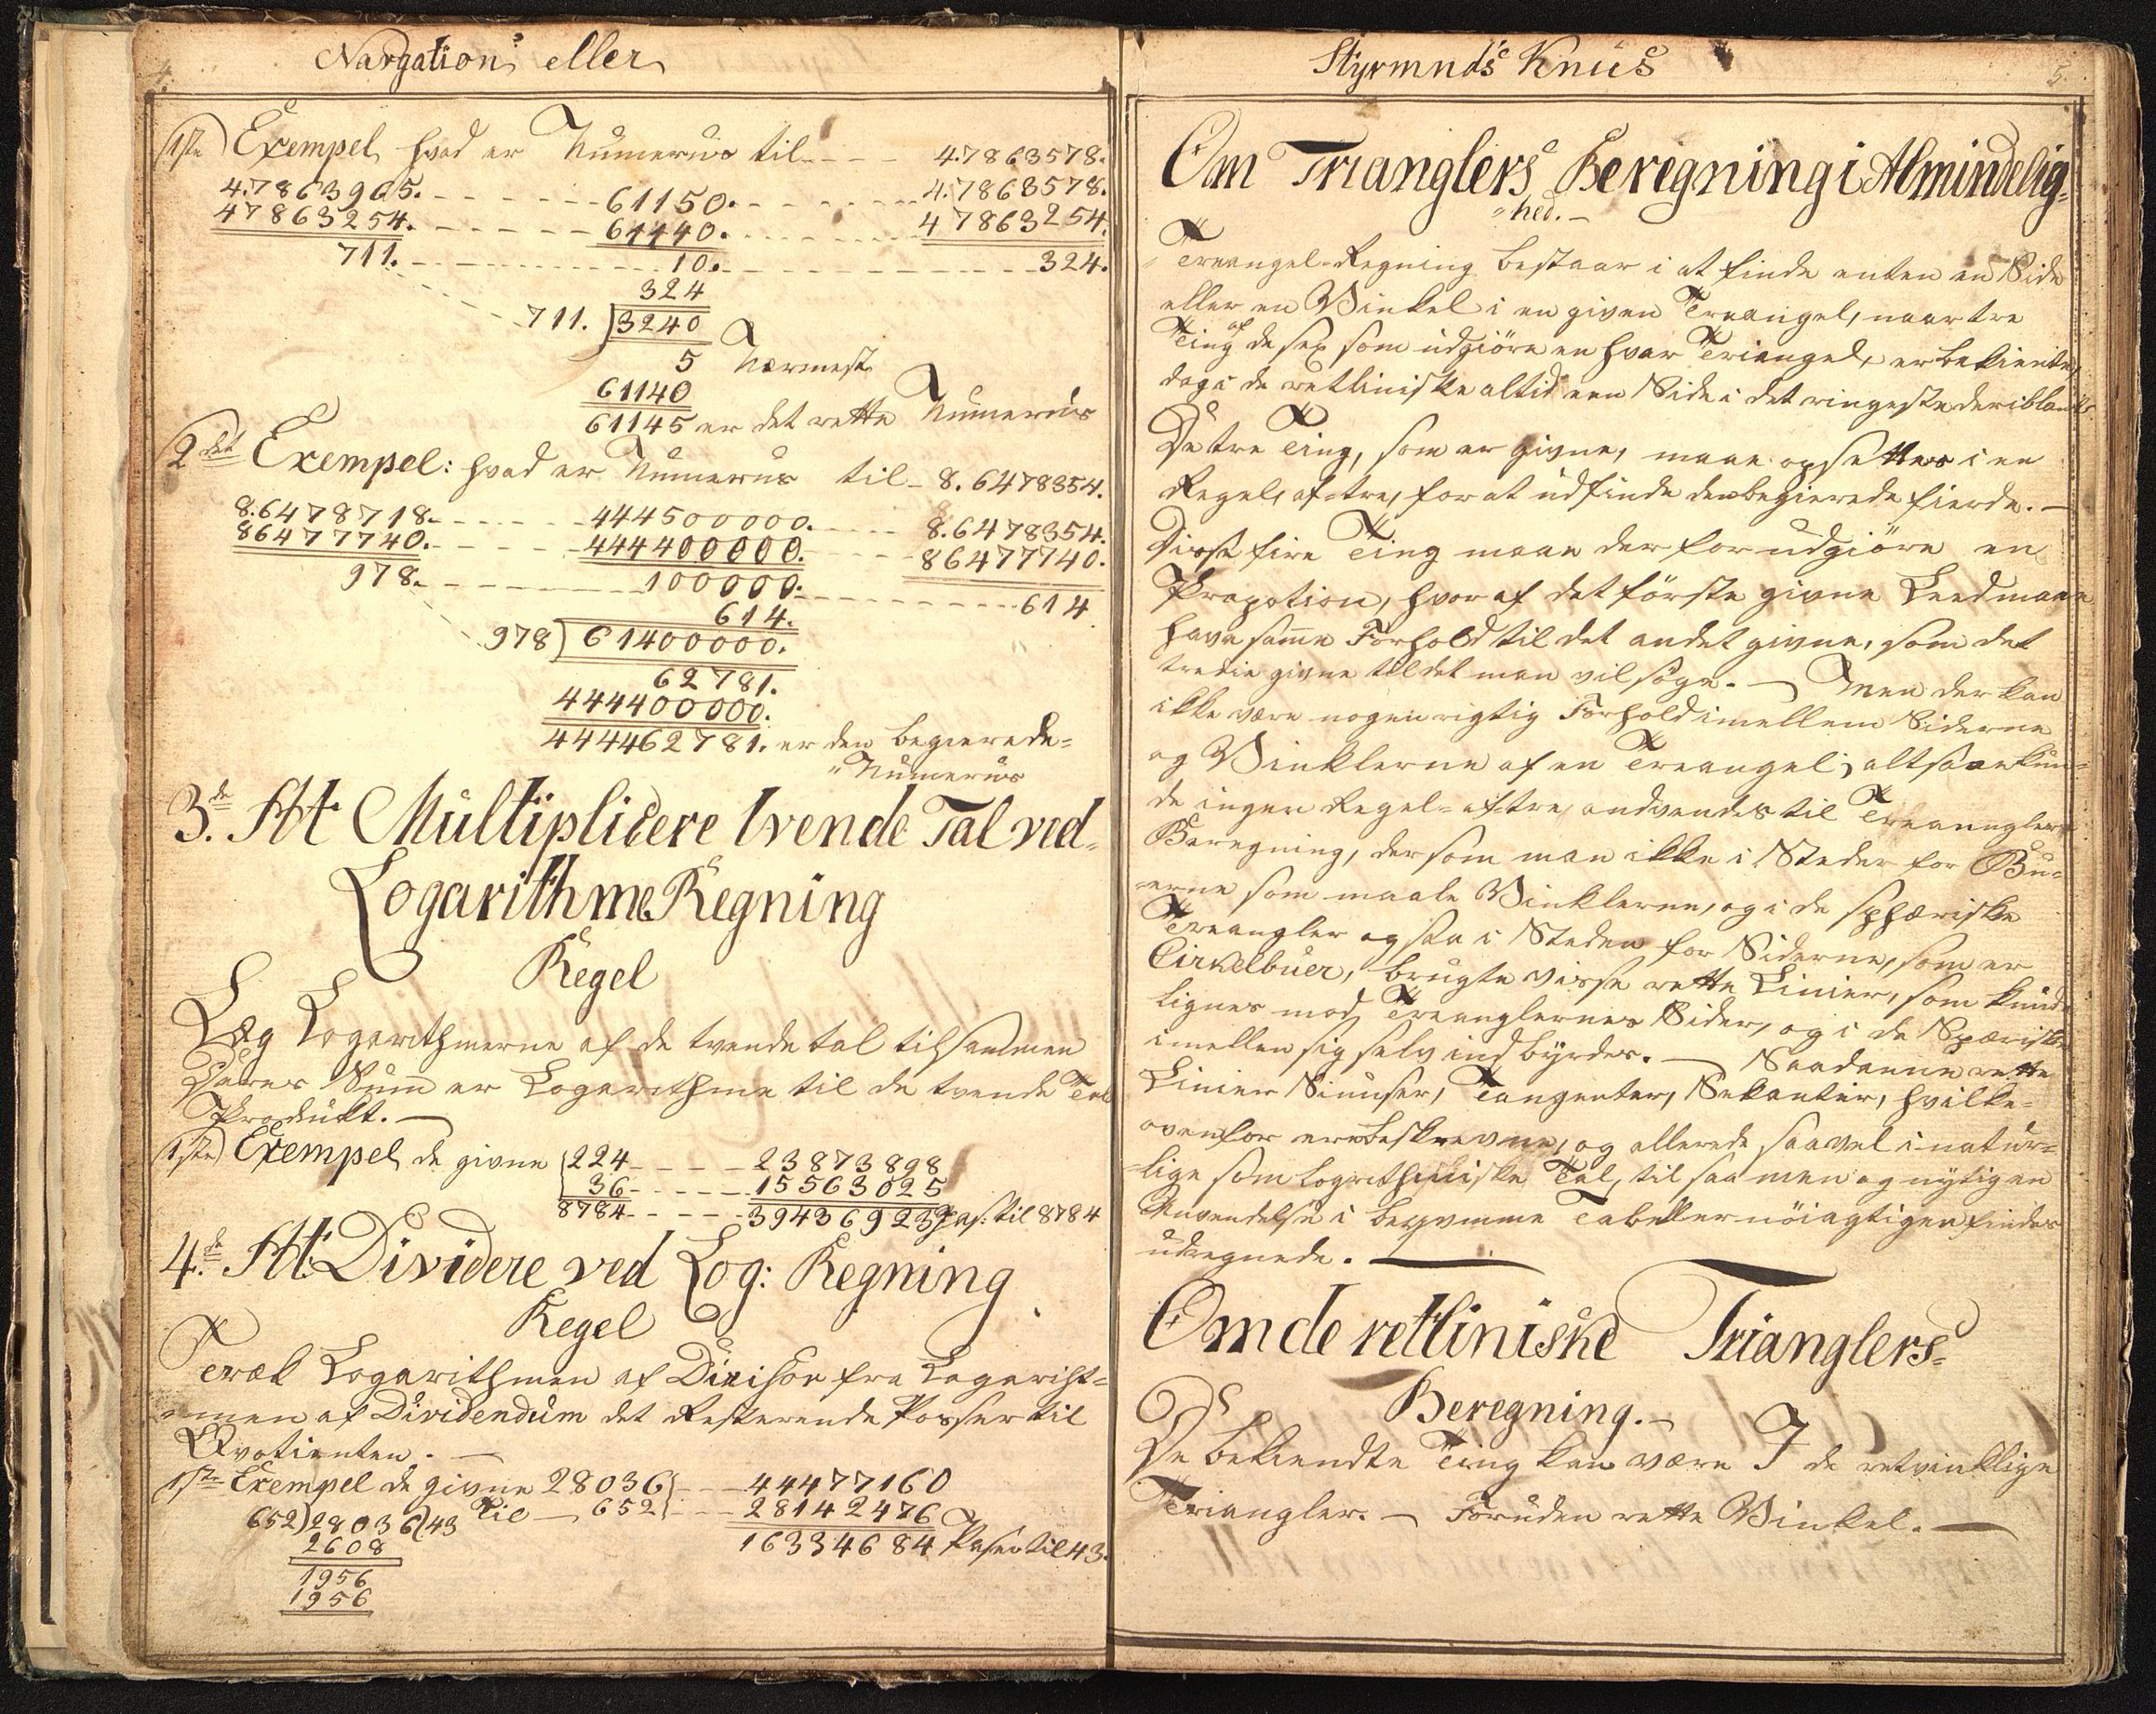 Navgation eller
1ste Exempel, hvad er Numerus til - - - - 4.7863578.
4.7863965. - - - - - 61150. - - - - - 4.7863578.
47863254. - - - - - 61140. - - - - - 47863254.
711. - - - - - 10. - - - - - 324.
324
711. 3240
5 Nærmest
61140
61145 er det rette Numerus
2det Exempel: hvad er Numerus til - 8.6478354.
8.6478718. - - - - - 444500000. - - - - 8.6478354.
86477740. - - - - - 444400000. - - - - 86477740.
978. - - - - - 100000. - - - - - 614.
614.
978) 61400000.
62781.
444400000.
444462781. er den begierede=
"Numerus
3.de At Multiplicere tvende Tal ved=
Logarithme Regning
Regel
Læg Logarithmerne af de tvende tal tilsammen
Deres Sum er Logarithme til de tvende Tal
Produkt. —
1ste Exempel, de givne 224 - - - - 23873898
36 - - - - - 15563025
8784 - - - - - 39436923 Pas: til 8784
4.de At Dividere ved Log: Regning
Regel
Træk Logarithmen af Divisor fra Logarith=
=men af Dividendum det Resterende Passer til
Qvotienten. —
1ste Exempel de givne 28036 - - - 44477160
652)28036(43 Til — 652 - - - 28142476
2608 16334684 Passer til 43.
1956
1956
Styrmnds Knus
5.
Om Trianglers Beregning i Almindelig=
"hed. —
Treangel-Regning bestaar i at finde enten en Side
eller en Vinkel i en given Treangel, naar tre
Ting af de sex som udgiöre en hvar Triangel, er bekiente,
dog i de retliniske altid een Side i det ringeste deriblandt
De tre Ting, som er givne, maae opsættes i en
Regel, af=tre, for at udfinde den begierede fierde. —
Disse fire Ting maae derfor udgiöre en
Propotion, hvoraf det förste givne Leed maae
have samme Forhold til det andet givne, som det
tredie givne til det man vil söge. — Men der kan
ikke være nogen rigtig Forhold imellem Siderne
og Vinklerne af en Treangel; altsaa kun=
de ingen Regel=af=tre, andvendes til Treanglers
Beregning, dersom man ikke i Steder for Bu=
=erne som maale Vinklerne, og i de sphæriske
Treangler ogsaa i Steden for Siderne, som er
Cirkelbuer, brugte visse rette Linier, som kunde
lignes mod Treanglernes Sider, og i de Spæriske
imellem sig selv indbyrdes. — Saadanne rette
Linier Sinuser, Tangenter, Sekanter, hvilke=
ovenfor ere beskrevne, og allerede saavel i natur=
=lige som Logrithmiske Tal, til saa men og nytigen
Anvendelse i beqvemme Tabeller nöiagtigen findes
udregnede. —
Om de retliniske Trianglers=
Beregning. —
De bekiendte Ting kan være I de retvinklige
Triangler. — Foruden rette Vinkel. —